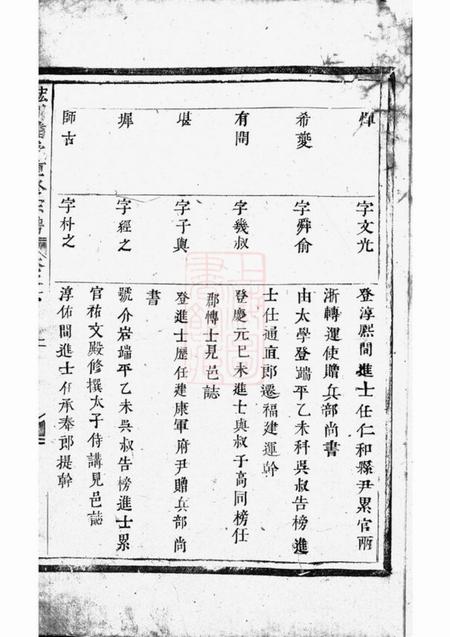 煇
字文光
登淳熈間進士任仁和縣尹累官兩
浙轉運使贈兵部尚書
希夔
字舜俞
由太學登端平乙未科吳叔告榜進
士仕通直郎遷福建運幹
有開
字幾叔
登慶元乙未進士與叔子高同榜任
郡博士見邑誌
堪
字子輿
登進士歷任建康軍府尹贈兵部尚
書
墀
字經之
號介岩端平乙未吳叔告榜進士累
官祐文殿修撰太子侍講見邑誌
師古
字朴之
淳佑間進士任承奉郎提幹